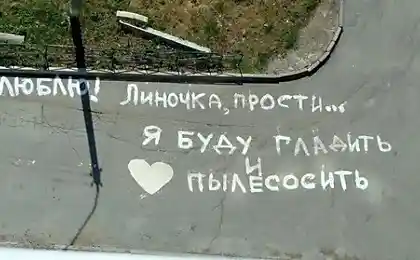 ЛЮБЛЮ! ЛИНОЧКА, ПРОСТИ...
Я БУДУ ГЛАДИТЬ
И
ПЫЛЕСОСИТЬ